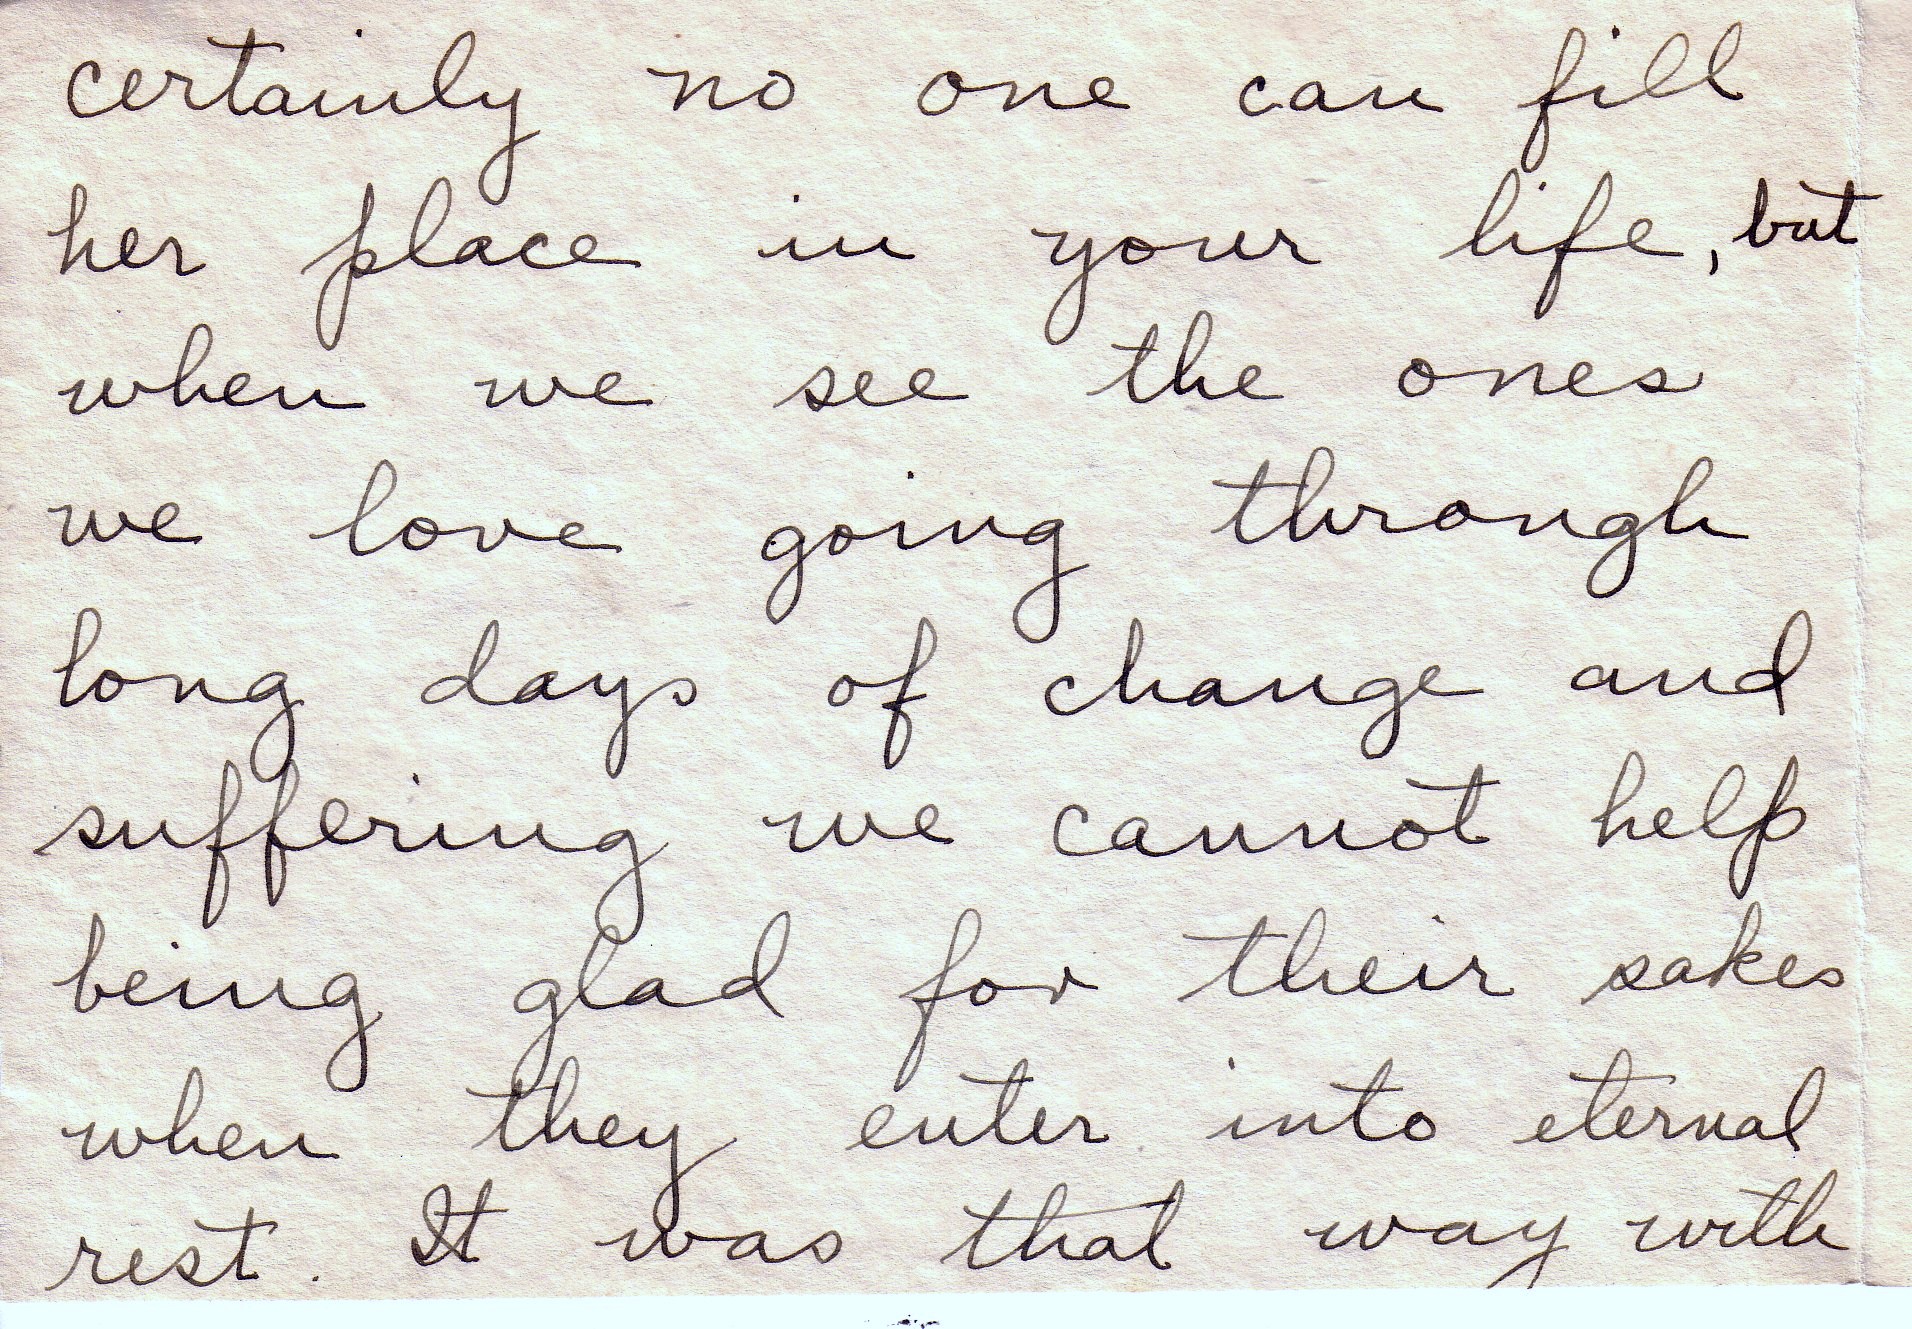 certainly no one can fill
her place in your life, but
when we see the ones
we love going through
long days of change and
suffering we cannot help
being glad for their sakes
when they enter into eternal
rest. It was that way with